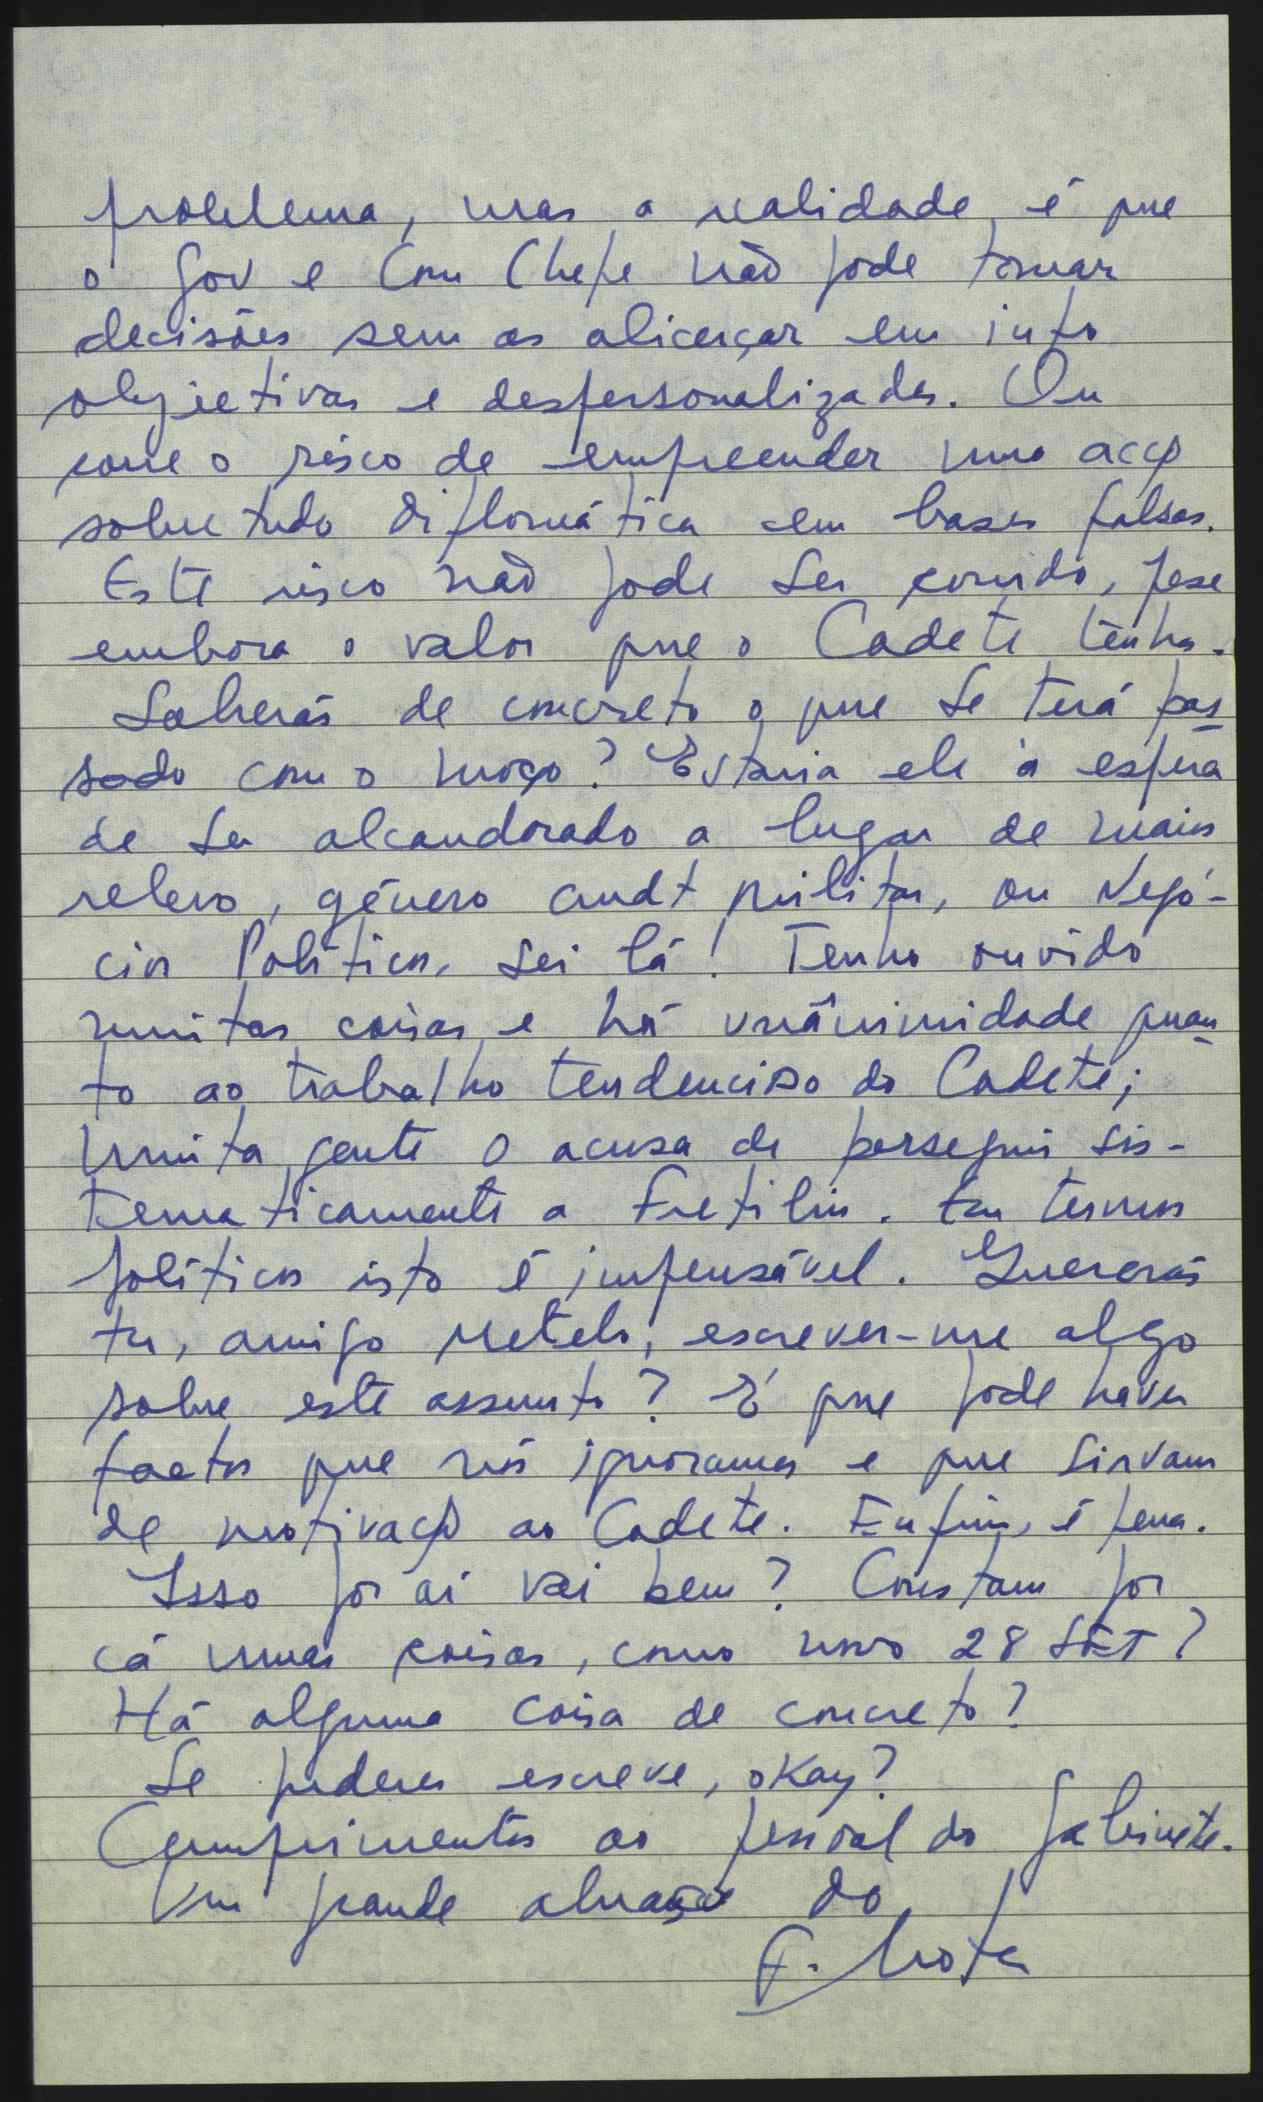 problema, mas a realidade, é que
o Gov e Com Chefe não pode tomar
decisões sem as alicerçar em info
objectivas e despersonalizadas. Ou
corre o risco de empreender uma acçº
sobretudo diplomática em bases falsas.
Este risco não pode ser corrido, pese
embora o valor que o Cadete tenha.
Saberás de concreto o que se terá pas
sado com o moço? Estaria ele à espera
de ser alcandorado a lugar de mais
relevo, género cmdt militar, ou Negó-
cios Políticos, sei lá! Tenho ouvido
muitas coisas e há unânimidade quan
to ao trabalho tendencioso do Cadete;
Muita gente o acusa de perseguir sis-
tematicamente a Fretilin. Em termos
políticos isto é impensável. Quererás
tu, amigo Metelo, escrever-me algo
sobre este assunto? É que pode haver
factos que nós ignoramos e que sirvam
de motivaçº ao Cadete. Enfim, é pena.
Isso por aí vai bem? Constam por
cá umas coisas, como novo 28 SET?
Há alguma coisa de concreto?
Se puderes escreve, okay?
Cumprimentos ao pessoal do Gabinete.
Um grande abraço do
F. Mota